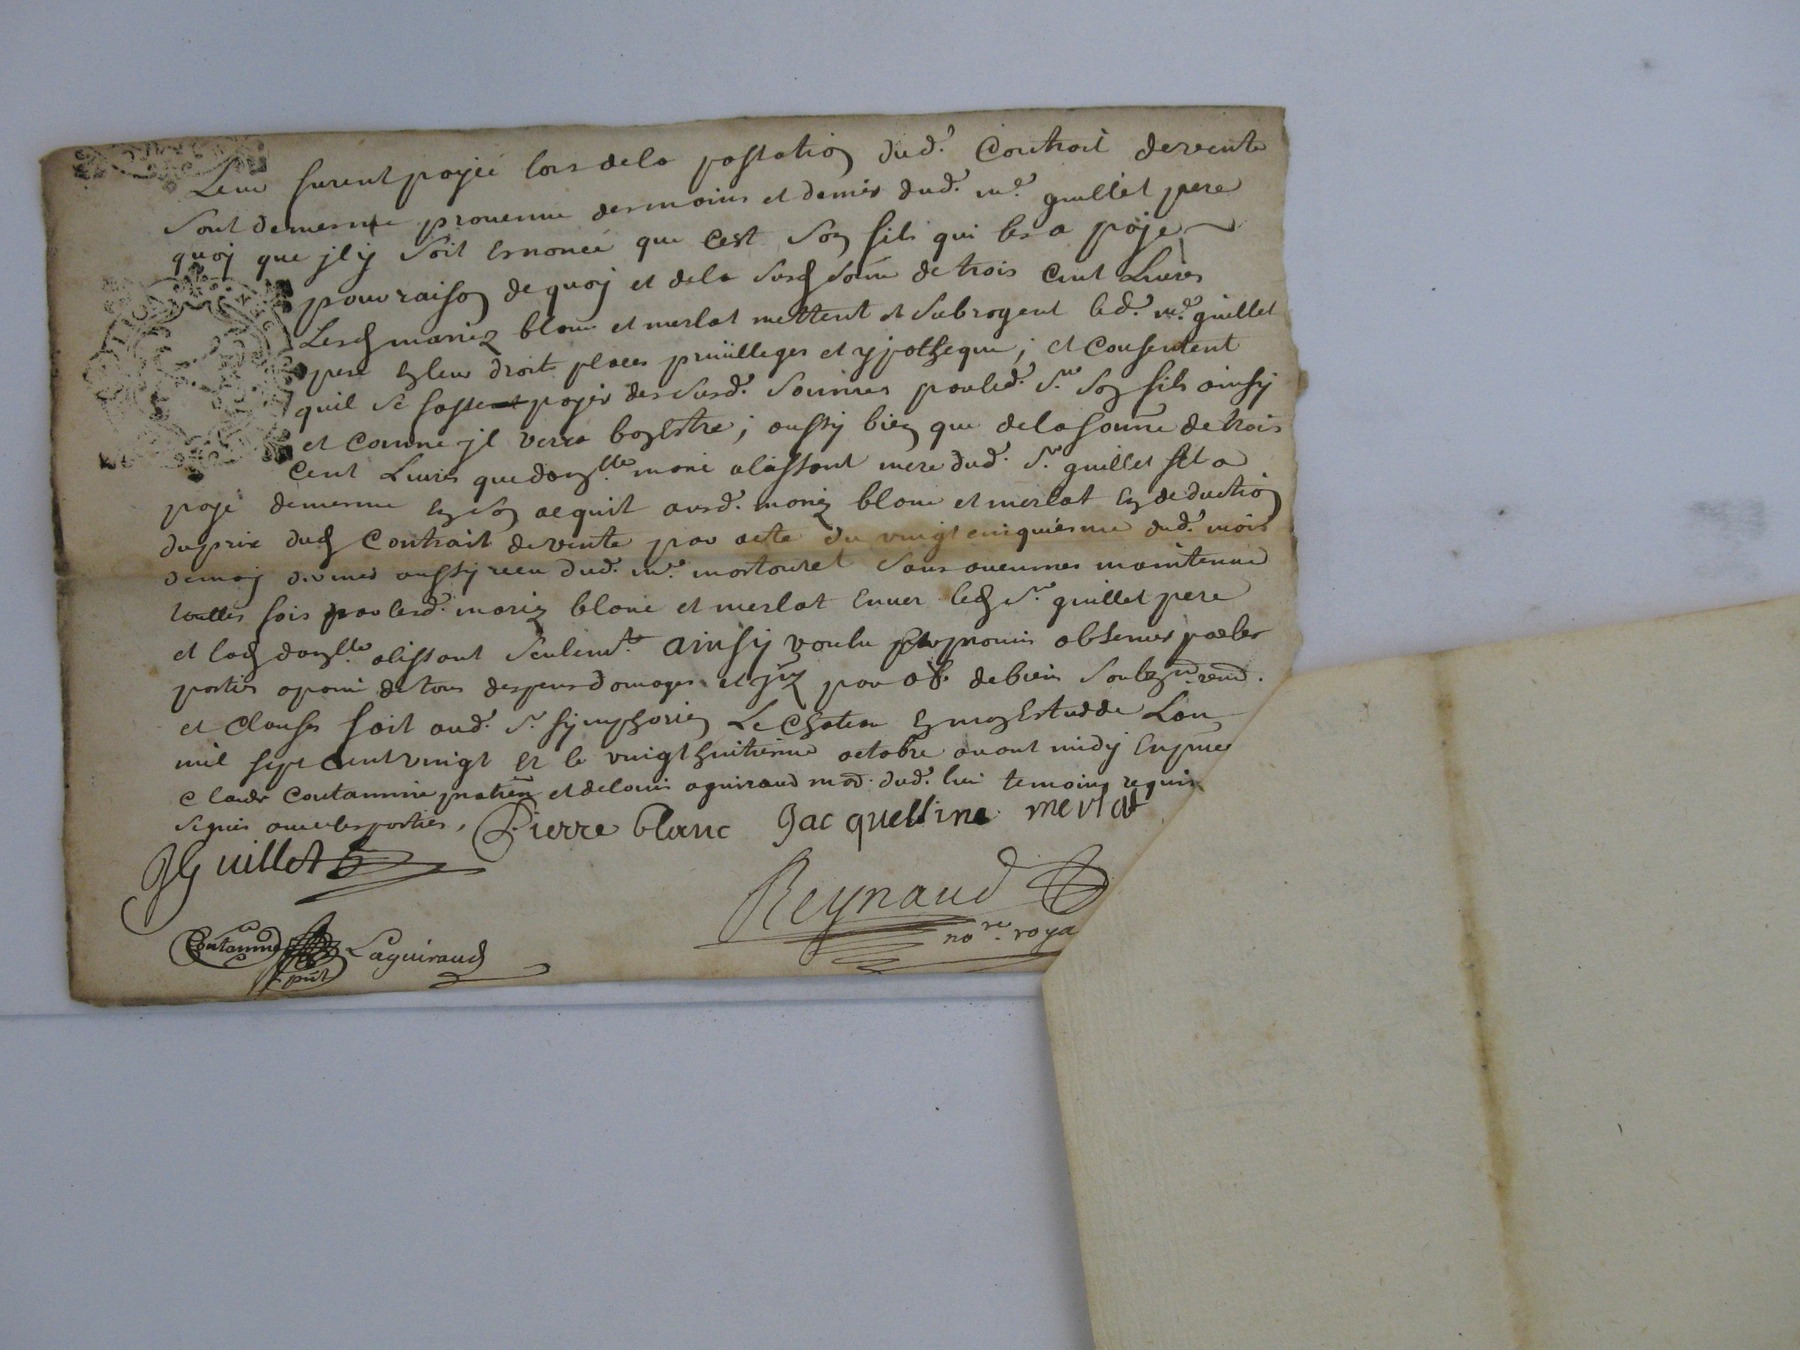 Leur furent payée lors dela passation dud.t Contrait devente
sont demesme prouenue desmoins et denies dud.t m.e guillet pere
quoj que jl y soit Ennoncé que cest son fils qui les a pajé
pour raison de quoj et dela susd somme de trois Cent Livres
Lesd mariez blanc et merlat mettent et subrogent led.t m.e guillet
pere En leur droit places priuilleges et ypotheque ; et Consentent
quil se fasse payer des susd.t sommes par led.t S.r son fils ainsy
et Comme jl verra bon Estre ; aussy bien que delasomme de trois
Cent Livres que damlle marie alissant mere dud.t S.r guillet fil a
payé demesme En son acquit ausd.t mariez blanc et merlat En deduction
duprix dud Contrait devente par acte du vingt cinquiesme dud.t mois
demay aussy receu dud.t m.e mortouret sans aucunes maintenue
touttes fois par lesd.t mariez blanc et merlat Enuer led S.r guillet pere
et lad damlle alissant seulem.t ainsy voulu promis obseruer par les
parties a peine de tous despens domages et par de biens
et Clauses fait aud.t S.t symphorien Le Chateau En mon Estudde Lan
mil sept cent vingt Et le vingt huitieme octobre auant midy En pnce
Claude Contamine praticien et de louis aguiraud dud.t lieu temoins requis
signés auec les parties, Pierre blanc Jacquelline merlat
JGuillet
Reynaud
no.re roya
Contamine
pnt
Laguiraud